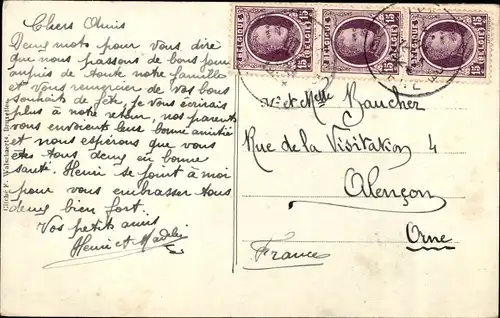 Chers Amis
Deux mots pour vous dire
que nous passons de bons jours
auprès de toute notre famille
et vous remercier de vos bons
souhaits de fête, je vous écrirais
plus à notre retour, nos parents
vous envoient leur bonne amitié
et nous espérons que vous
êtes tous deux en bonne
santé. Henri se joint à moi
pour vous embrasser tous
deux bien fort.
Vos petits amis
Henri et Madele
Cliché F. Walschaerts, Bruxelles
BELGIQUE 15
BELGIQUE 15
BELGIQUE 15
Mr et Melle Baucher
Rue de la Visitation 4
Alençon
Orne
France